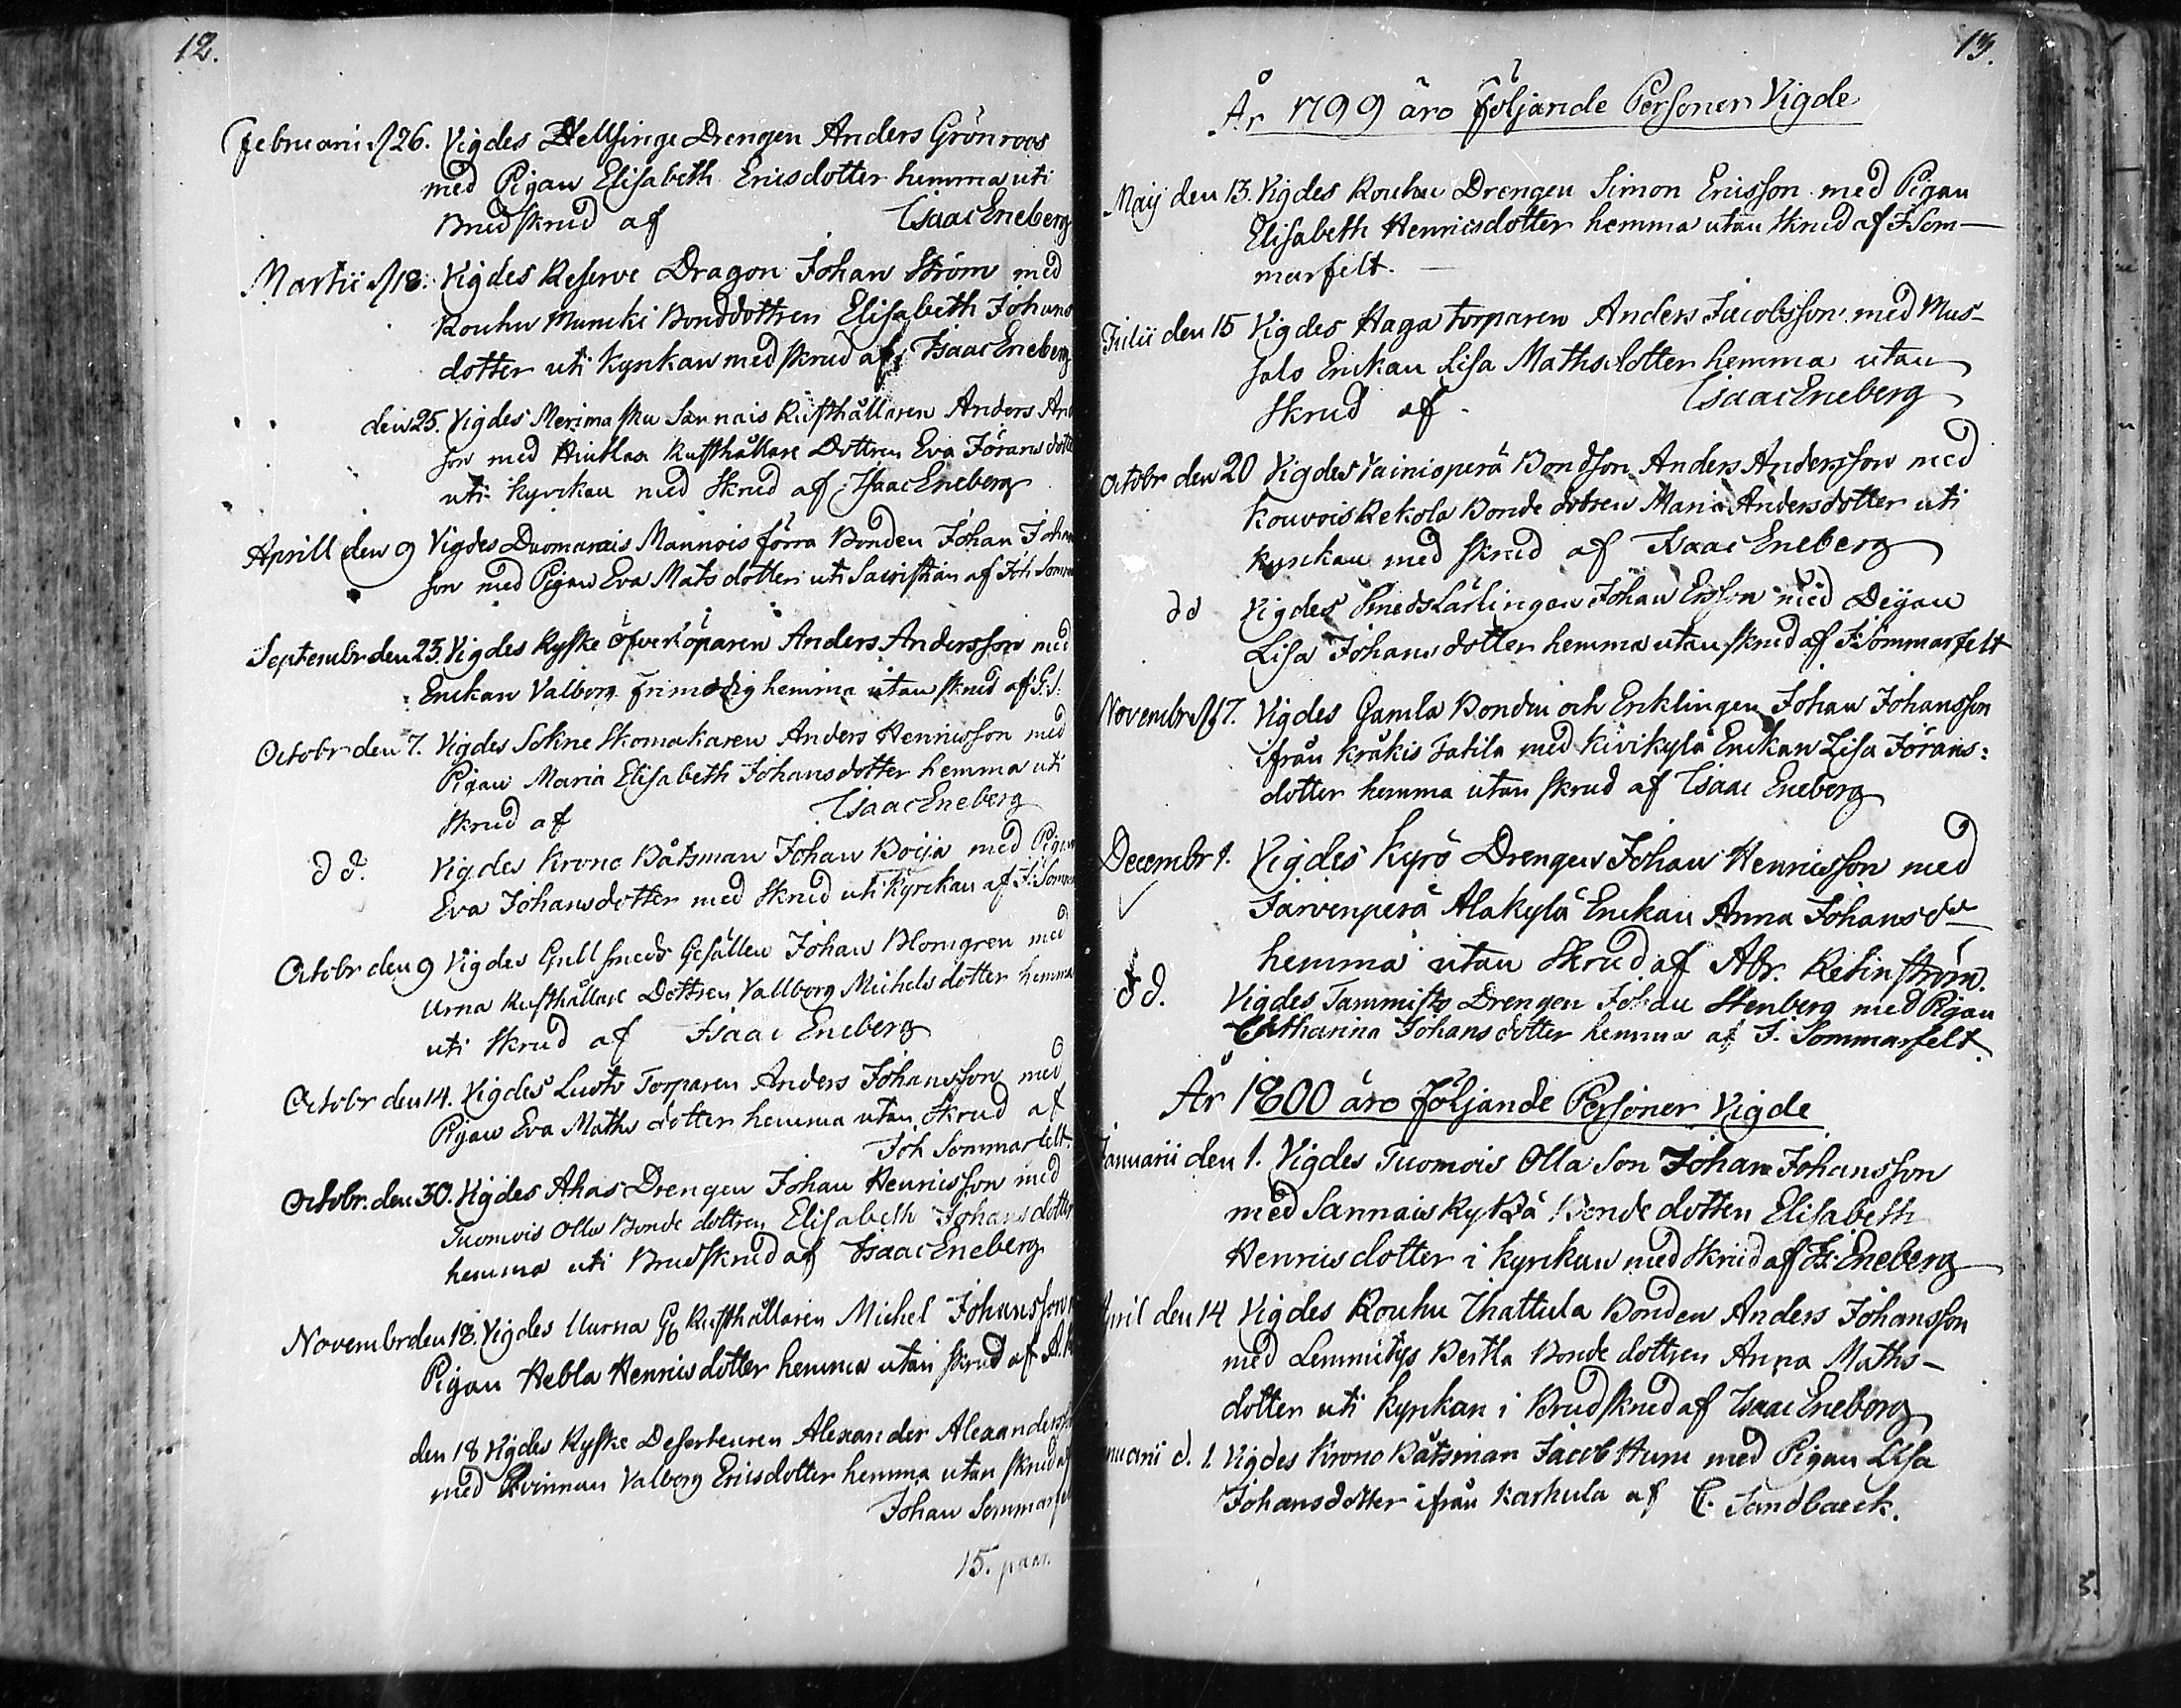 12.
Februarii d 26. Vigdes Hellsinge Drengen Anders Grönroos
med Pigan Elisabeth Ericsdotter hemma uti
Brudskrud af Isaac Eneberg
Martii d 18. Vigdes Reserve Dragon Johan Ström med
Rouhu Muncki Bonddottren Elisabeth Johans
dotter uti Kyrckan med skrud af Isaac Eneberg
den 25. Vigdes Merimasku Sannais Rusthållaren Anders And
son med Rusthållare Dottren Eva Jörans dotter
uti kyrckan med Skrud af Isaac Eneberg
Aprill den 9 Vigdes Duomarais Mannois förra Bonden Johan Johan
son med Pigan Eva Mats dotter uti Sacristian af Joh Somm
Septembr den 23. Vigdes Ryske öfverlöparen Anders Andersson med
Enckan Valborg Frimodig hemma utan skrud af G. S.
Octobr den 7. Vigdes Sokne Skomakaren Anders Henricsson med
Pigan Maria Elisabeth Johansdotter hemma uti
Skrud af Isaac Eneberg
d d. Vigdes Krono Båtsman Johan Boija med Pigan
Eva Johansdotter med Skrud uti Kyrckan af J. Somm
Octobr den 9 Vigdes Gullsmeds Gesällen Johan Blomgren med
Urna Rusthållare Dottren Vallborg Michelsdotter hemma
uti Skrud af Isaac Eneberg
Octobr den 14. Vigdes Luoto Torparen Anders Johansson med
Pigan Eva Maths dotter hemma utan Skrud af
Joh Sommarfelt.
Octobr. den 30. Vigdes Ahas Drengen Johan Henricsson med
Tuomois Olla Bonde dottren Elisabeth Johans dotter
hemma uti Brudskrud af Isaac Eneberg
Novembr den 18. Vigdes Uurna Rusthållaren Michel Johansson
Pigan Hebla Henricsdotter hemma utan skrud af A. R
den 18 Vigdes Ryske Deserteuren Alexander Alexanders
med Qvinnan Valborg Ericsdotter hemma utan skrud af
Johan Sommarfel
15. paar.
13.
År 1799 äro följande Personer Vigde
Maij den 13. Vigdes Rouhu Drengen Simon Ericsson med Pigan
Elisabeth Henricsdotter hemma utan skrud af J Som-
marfelt.
Julii den 15 Vigdes Haga torparen Anders Jacobsson med Mus-
salo Enckan Lisa Mathsdotter hemma utan
Skrud af Isaac Eneberg
Octobr den 20 Vigdes Vainioperä Bondson Anders Andersson med
Kouvois Rekola Bonde dotren Maria Andersdotter uti
kyrckan med skrud af Isaac Eneberg
dd Vigdes Smeds Lärlingen Johan Ersson med Pigan
Lisa Johans dotter hemma utan skrud af J. Sommarfelt
Novembr d 17. Vigdes Gamla Bonden och Encklingen Johan Johansson
ifrån Kråkis Tatila med Kivikylä Enckan Lisa Jörans:
dotter hemma utan skrud af Isaac Eneberg
Decembr 1. Vigdes Kyrö Drengen Johan Henricsson med
Järvenperä Alakylä Enckan Anna Johansdr
hemma utan Skrud af Abr. Relinström.
d d. Vigdes Tammisto Drengen Johan Stenberg med Pigan
Catharina Johans dotter hemma af J. Sommarfelt.
År 1800 äro följande Personer Vigde
Januarii den 1. Vigdes Tuomois Olla Son Johan Johansson
med Sannais Bonde dotten Elisabeth
Henricsdotter i kyrckan med Skrud af Is: Eneberg
April den 14 Vigdes Rouhu Uhattula Bonden Anders Johansson
med Lemmitys Bertla Bonde dottren Anna Maths-
dotter uti kyrckan i Brudskrud af Isaac Eneberg
nuarii d. 1. Vigdes Krono Båtsman Jacob Huru med Pigan Lisa
Johansdotter ifrån Karhula af C. Sandbaeck.